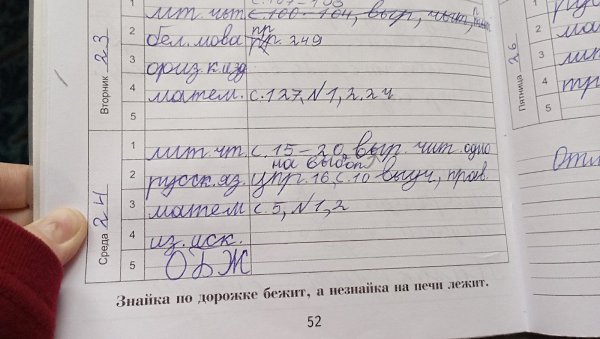 Вторник 23
1 лит. чт. с. 160-164, выр. чит.
2 бел. мова пр. 249
3 физ. к. изд
4 матем. с. 127, N 1, 2.
5
Среда 24
1 лит. чт. с. 15-20, выр. чит. одно
на выбор
2 русск. яз. упр. 16, с. 10 выуч, прав.
3 матем с. 5, N 1, 2
4 из. иск.
5 ОБЖ
Знайка по дорожке бежит, а незнайка на печи лежит.
52
Пятница 26
1
2
3
4
5